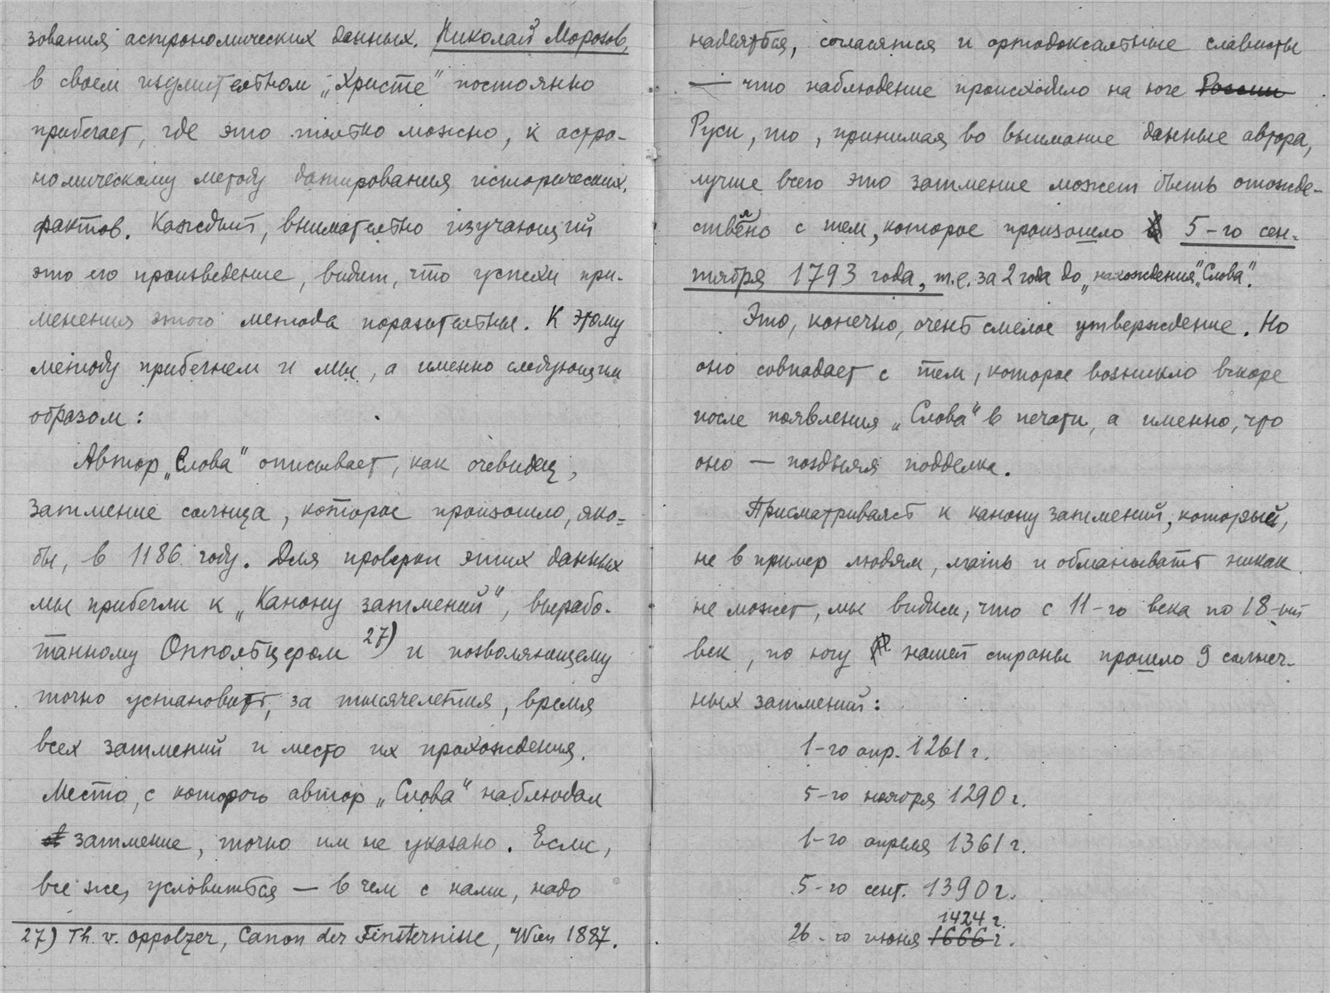 зования астрономических данных. Николай Морозов,
в своем изумительном „Христе“ постоянно
прибегает, где это только можно, к астро-
номическому методу датирования исторических
фактов. Каждый, внимательно изучающий
это его произведение, видит, что успехи при-
менения этого метода поразительны. К этому
методу прибегнем и мы, а именно следующим
образом:
Автор „Слова“ описывает, как очевидец,
затмение солнца, которое произошло, яко-
бы, в 1186 году. Для проверки этих данных
мы прибегли к „Канону затмений“, вырабо-
танному Оппольцером 27) и позволяющему
точно установить, за тысячелетия, время
всех затмений и место их прохождения.
Место, с которого автор „Слова“ наблюдал
затмение, точно им не указано. Если,
все же, условиться — в чем с нами, надо
27) Th. v. Oppolzer, Canon der Finsternisse, Wien 1887.
надеяться, согласятся и ортодоксальные слависты
— что наблюдение происходило на юге России
Руси, то, принимая во внимание данные автора,
лучше всего это затмение может быть отожде-
ствлено с тем, которое произошло 5-го сен-
тября 1793 года, т.е. за 2 года до „нахождения“ „Слова“.
Это, конечно, очень смелое утверждение. Но
оно совпадает с тем, которое возникло вскоре
после появления „Слова“ в печати, а именно, что
оно — поздняя подделка.
Присматриваясь к канону затмений, который,
не в пример людям, лгать и обманывать никак
не может, мы видим, что с 11-го века по 18-ый
век, по югу нашей страны прошло 9 солнеч-
ных затмений:
1-го апр. 1261 г.
5-го ноября 1290 г.
1-го апреля 1361 г.
5-го сент. 1390 г.
1424 г.
26-го июня 1666 г.